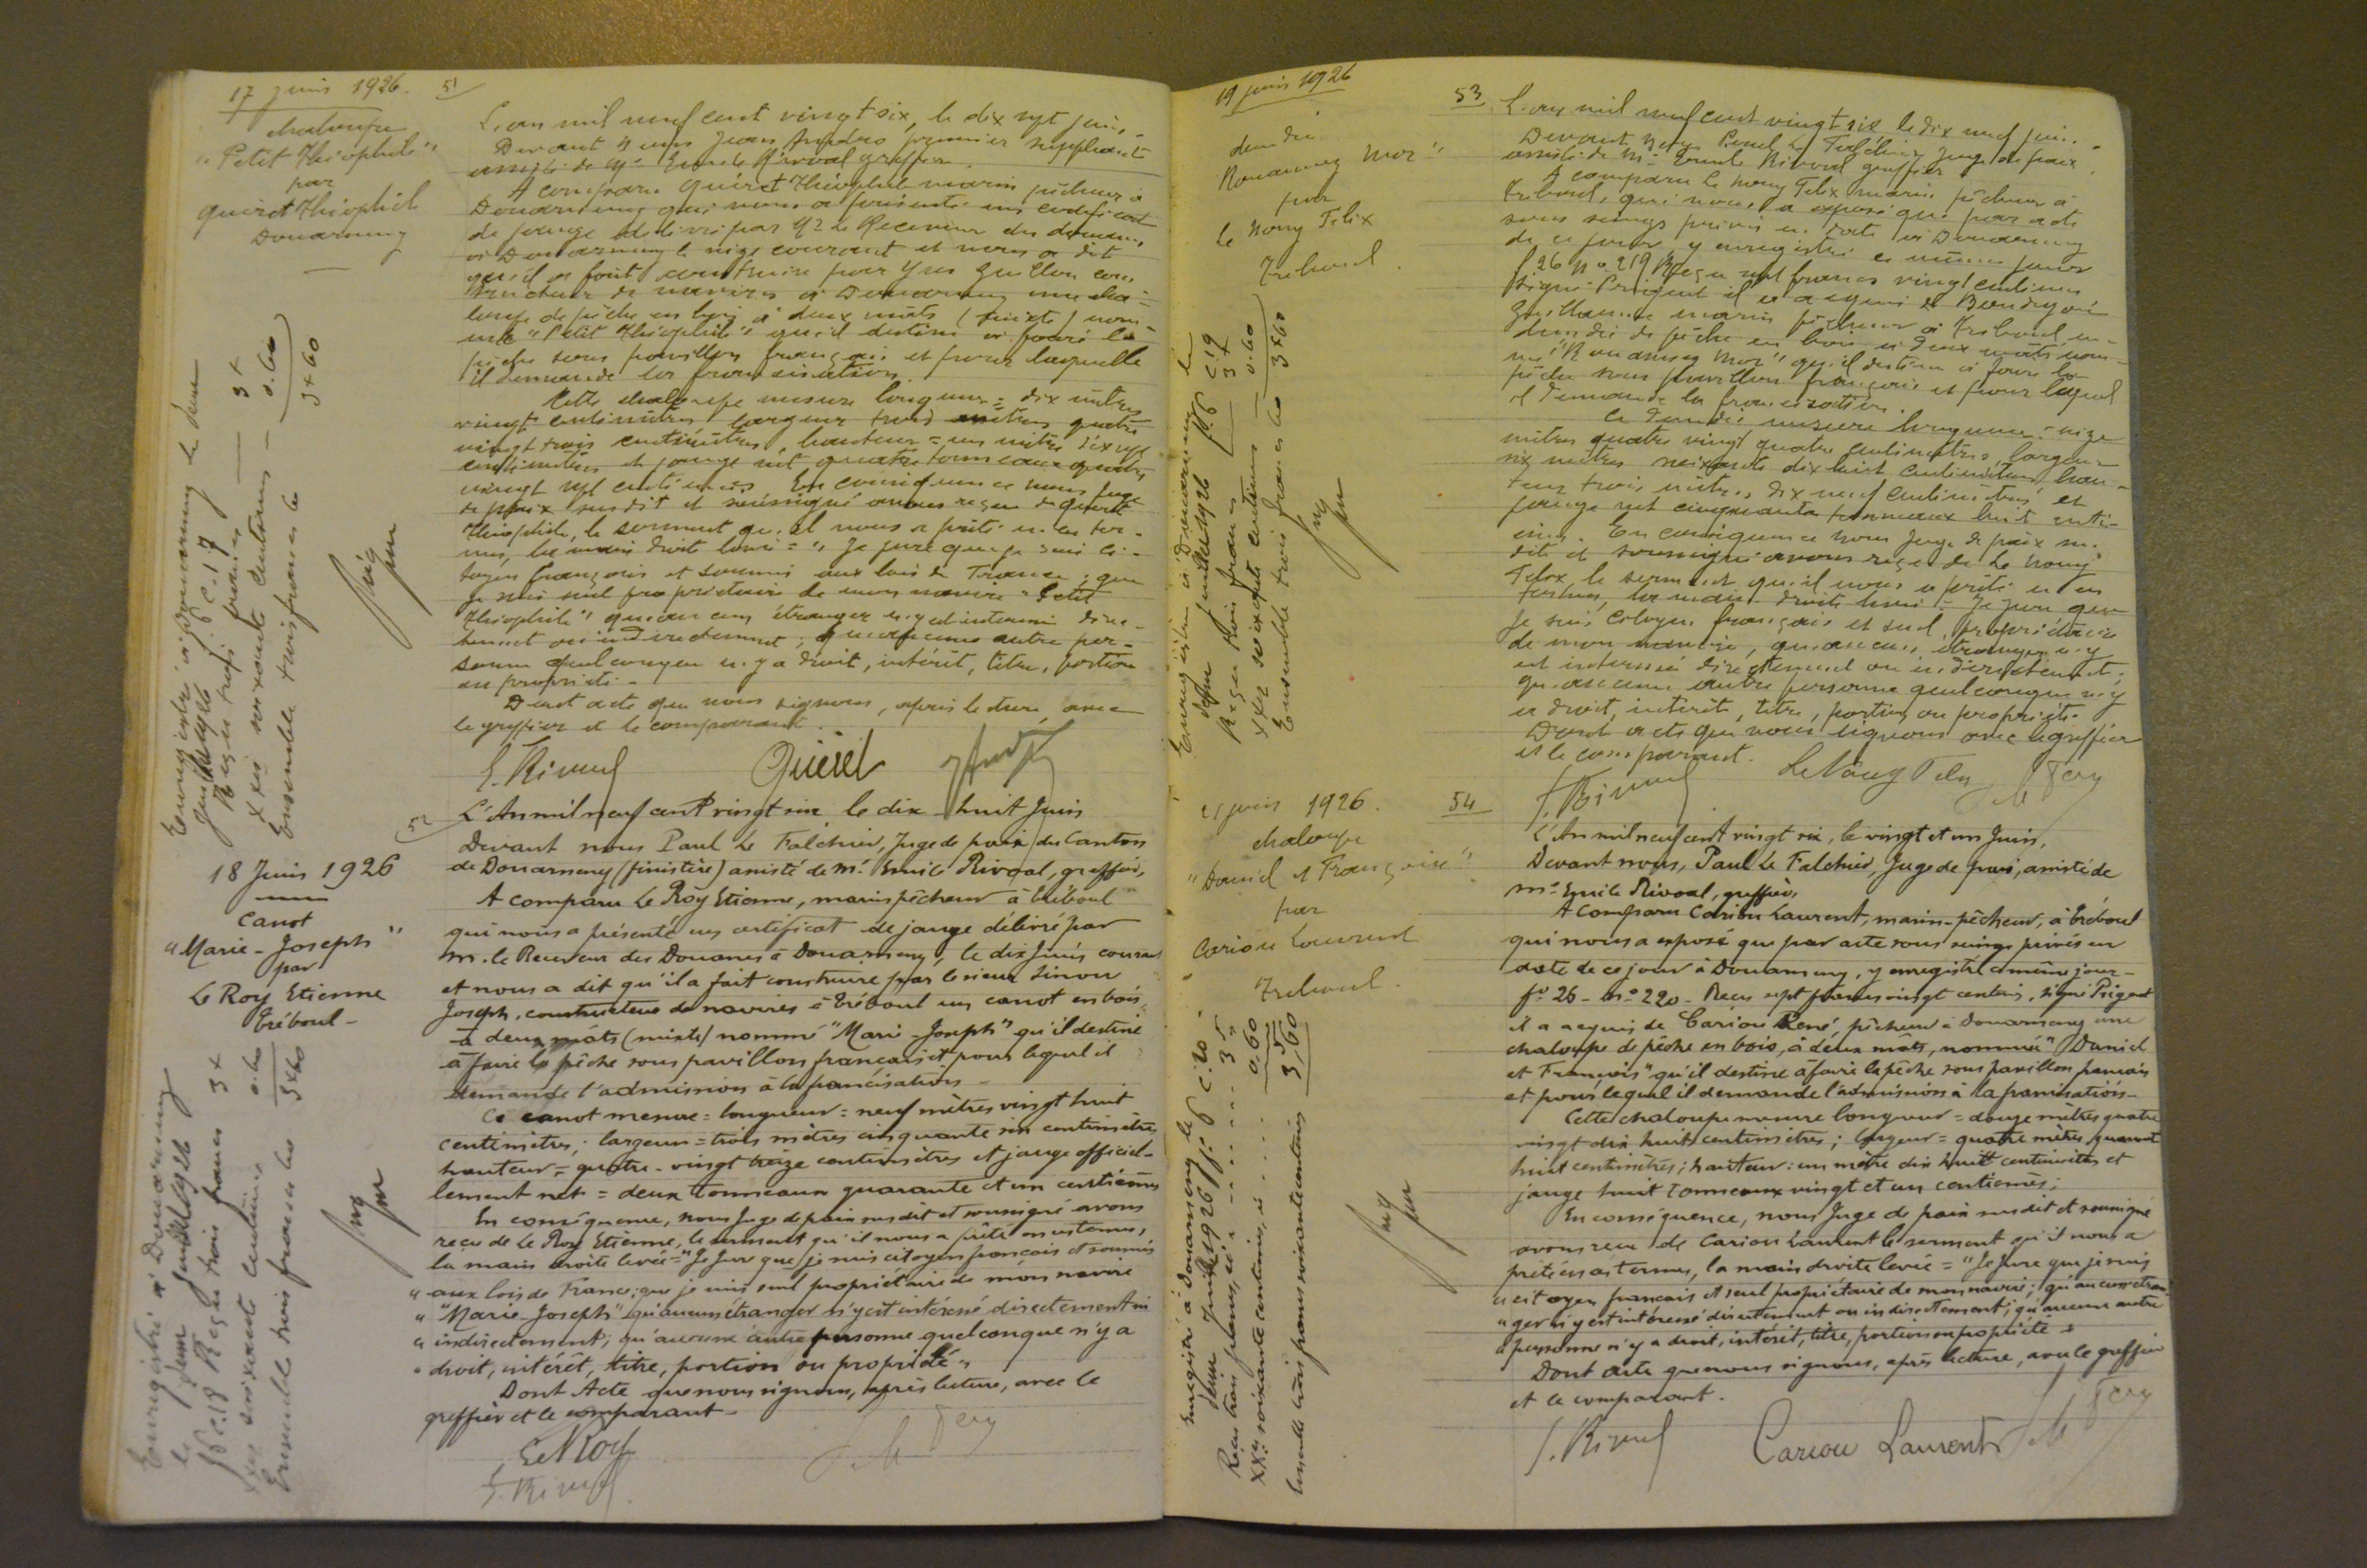 17 juin 1926.
chaloupe
"Petit Théophile"
par
Quéret Théophile
Douarnenez
51
L'an mil neuf cent vingt six, le dix sept juin,
Devant nous Jean Andro premier suppléant
assisté de Me Emile Rivoal greffier.
A comparu Quéret Théophile marin pêcheur à
Douarnenez qui nous a présenté un certificat
de jauge délivré par Mr le Receveur des douanes
à Douarnenez le courant et nous a dit
qu'il a fait construire par Yves cons-
tructeur de navires à Douarnenez une cha-
loupe de pêche en bois à deux mâts (mixte) nom-
mée "Petit Théophile" qu'il destine à faire la
pêche sous pavillon français et pour laquelle
il demande la francisation.
Cette chaloupe mesure longueur = dix mètres
vingt centimètres, largeur trois mètres quatre
vingt trois centimètres, hauteur = un mètre dix sept
centimètres et jauge net quatre tonneaux quatre
vingt sept centièmes. En conséquence nous juge
de paix susdit et soussigné avons reçu de Quéret
Théophile, le serment qu'il nous a prêté en ces ter-
mes, la main droite levée = "Je jure que je suis ci-
toyen français et soumis aux lois de France; que
je suis seul propriétaire de mon navire "Petit
Théophile" qu'aucun étranger n'y est intéressé direc-
tement ou indirectement; qu'aucune autre per-
sonne quelconque n'y a droit, intérêt, titre, portion
ou propriété -
Dont acte que nous signons, après lecture, avec
le greffier et le comparant.
E. Rivoal Quéret
Enregistré à Douarnenez le deux
juillet 1926 fo 6 c. 17
Reçu trois francs — 3 "
xxes soixante centimes — 0.60
Ensemble trois francs 60 3 " 60
52
18 Juin 1926
Canot
"Marie-Joseph"
par
Le Roy Etienne
Tréboul -
L'An mil neuf cent vingt six le dix-huit Juin
Devant nous Paul Le Falchier, Juge de paix du Canton
de Douarnenez (finistère) assisté de Me Emile Rivoal, greffier,
A comparu Le Roy Etienne, marin pêcheur à Tréboul
qui nous a présenté un certificat de jauge délivré par
M. le Receveur des Douanes à Douarnenez, le dix Juin courant
et nous a dit qu'il a fait construire par le sieur Sinou
Joseph, constructeur de navires à Tréboul un canot en bois
à deux mâts (mixte) nommé "Marie-Joseph" qu'il destine
à faire la pêche sous pavillon français et pour lequel il
demande l'admission à la francisation -
Ce canot mesure = longueur = neuf mètres vingt huit
centimètres; largeur = trois mètres cinquante six centimètres
hauteur = quatre-vingt treize centimètres et jauge officiel-
lement net = deux tonneaux quarante et un centièmes
En conséquence, nous Juge de paix susdit et soussigné avons
reçu de Le Roy Etienne, le serment qu'il nous a prêté en ces termes,
la main droite levée = "Je Jure que je suis citoyen français et soumis
" aux lois de France; que je suis seul propriétaire de mon navire
" "Marie-Joseph" qu'aucun étranger n'y est intéressé directement ni
" indirectement; qu'aucune autre personne quelconque n'y a
" droit, intérêt, titre, portion ou propriété "
Dont Acte que nous signons, après lecture, avec le
greffier et le comparant -
Le Roy
E. Rivoal
Enregistré à Douarnenez
le deux juillet 1926
fo 6 c. 18 Reçu trois francs 3 "
xxes soixante centimes 0.60
Ensemble trois francs 60 3 " 60
19 juin 1926
dundée
Mor"
par
Le Nouy Felix
Tréboul.
53
L'an mil neuf cent vingt six le dix neuf juin.
Devant nous Paul Le Falchier Juge de paix
assisté de Me Emile Rivoal greffier
A comparu Le Nouy Felix marin pêcheur à
Tréboul, qui nous a exposé que par acte
sous seings privés en date à Douarnenez
de ce jour, y enregistré ce même jour
fo 26 No 219 Reçu sept francs vingt centimes
signé Prigent il a acquis de
Guillaume marin pêcheur à Tréboul un
dundée de pêche en bois à deux mâts nom-
mé Mor" qu'il destine à faire la
pêche sous pavillon français et pour lequel
il demande la francisation.
Ce dundée mesure longueur =
mètres quatre vingt quatre centimètres, largeur
six mètres soixante dix huit centimètres, hau-
teur trois mètres dix neuf centimètres et
jauge net cinquante tonneaux huit centi-
èmes. En conséquence nous Juge de paix sus-
dit et soussigné avons reçu de Le Nouy
Felix, le serment qu'il nous a prêté en ces
termes, la main droite levée = Je jure que
je suis citoyen français et seul propriétaire
de mon navire, qu'aucun étranger n'y
est intéressé directement ou indirectement;
qu'aucune autre personne quelconque n'y
a droit, intérêt, titre, portion ou propriété.
Dont acte que nous signons avec le greffier
et le comparant.
E. Rivoal Le Nouy Felix
Enregistré à Douarnenez le
deux juillet 1926 fo 6 c 19
Reçu trois francs — 3 "
xxes soixante centimes — 0.60
Ensemble trois francs 60 3 " 60
21 juin 1926.
chaloupe
"Daniel et Françoise"
par
Cariou Laurent
Tréboul.
54
L'An mil neuf cent vingt six, le vingt et un Juin,
Devant nous, Paul Le Falchier, Juge de paix, assisté de
Me Emile Rivoal, greffier,
A Comparu Cariou Laurent, marin-pêcheur, à Tréboul
qui nous a exposé que par acte sous seings privés en
date de ce jour à Douarnenez, y enregistré ce même jour -
fo 26 - No 220 - Reçu sept francs vingt centimes, signé Prigent
il a acquis de Cariou René, pêcheur à Douarnenez une
chaloupe de pêche en bois, à deux mâts, nommée "Daniel
et François" qu'il destine à faire la pêche sous pavillon français
et pour lequel il demande l'admission à la francisation -
Cette chaloupe mesure longueur = douze mètres quatre
vingt dix huit centimètres; largeur = quatre mètres quarante
huit centimètres; hauteur: un mètre dix huit centimètres et
jauge huit tonneaux vingt et un centièmes;
En conséquence, nous Juge de paix susdit et soussigné
avons reçu de Cariou Laurent le serment qu'il nous a
prêté en ces termes, la main droite levée = "Je Jure que je suis
" citoyen français et seul propriétaire de mon navire; qu'aucun étran-
" ger n'y est intéressé directement ou indirectement; qu'aucune autre
" personne n'y a droit, intérêt, titre, portion ou propriété "
Dont acte que nous signons, après lecture, avec le greffier
et le comparant.
E. Rivoal Cariou Laurent
Enregistré à Douarnenez le
deux Juillet 1926 fo 6 c. 20
Reçu trois francs, ci - - - - 3 "
XXes soixante centimes, ci . . . . 0.60
Ensemble trois francs soixante centimes 3,60